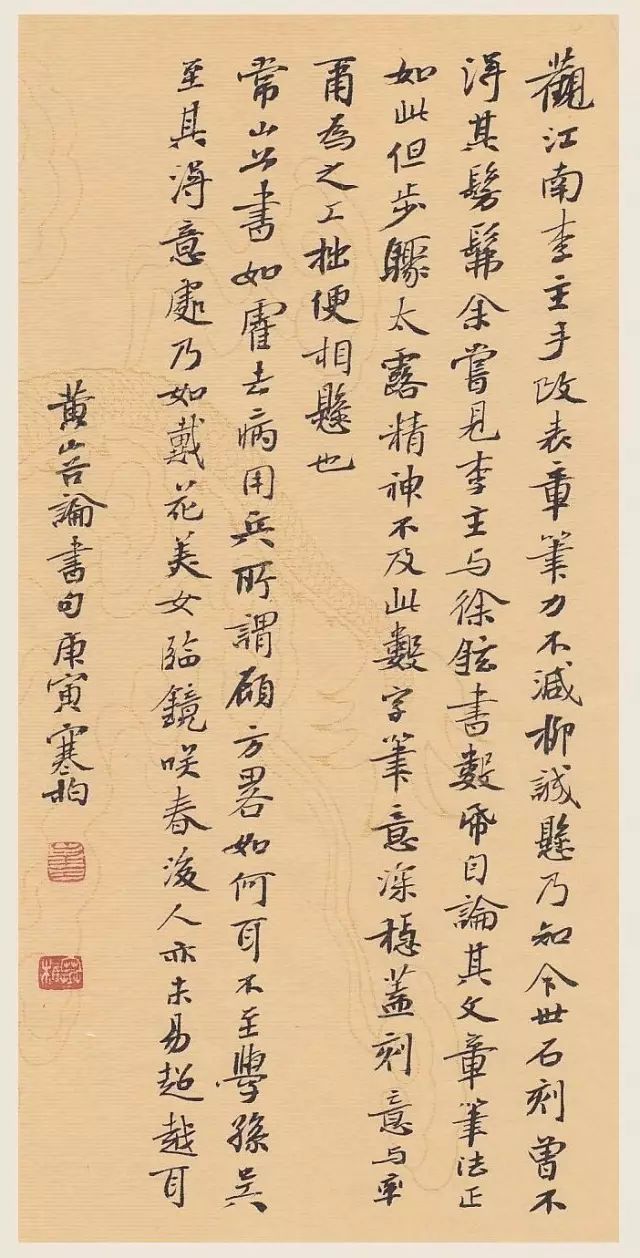 觀江南李主手改表章筆力不減柳誠懸乃知今世石刻曾不
得其髣髴余嘗見李主与徐鉉書數紙自論其文章筆法正
如此但步驟太露精神不及此數字筆意深穩蓋刻意与率
爾為之工拙便相懸也
常山公書如霍去病用兵所謂顧方畧如何耳不至學孫吴
至其得意處乃如戴花美女臨鏡咲春後人亦未易超越耳
黄山谷論書句庚寅寒柏